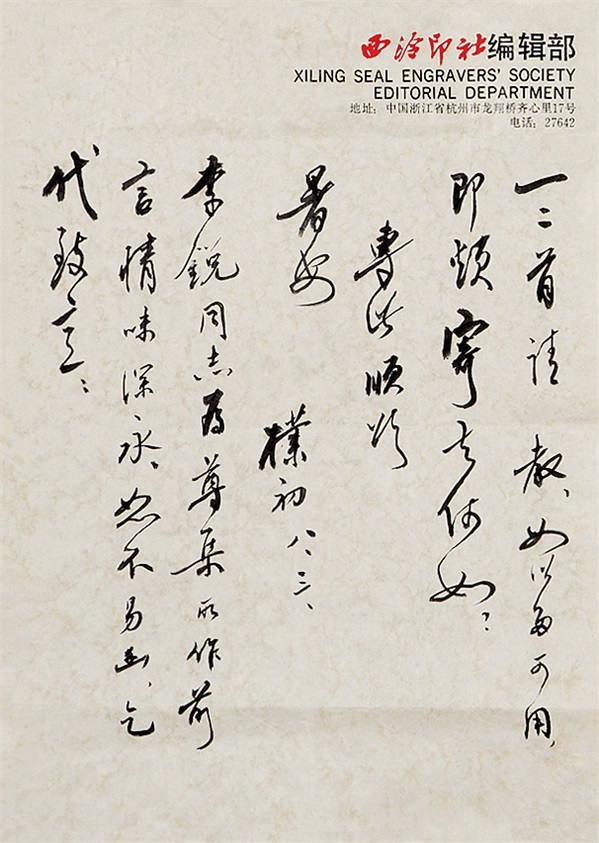 西泠印社编辑部
XILING SEAL ENGRAVERS' SOCIETY
EDITORIAL DEPARTMENT
地址：中国浙江省杭州市龙翔桥齐心里17号
电话：27642
一二首请 教、如以为可用、
即烦寄去何如？
專此順頌
暑安
樸初 八、三、
李鋭同志为尊集所作前
言情味深永、恕不另函、乞
代致意；